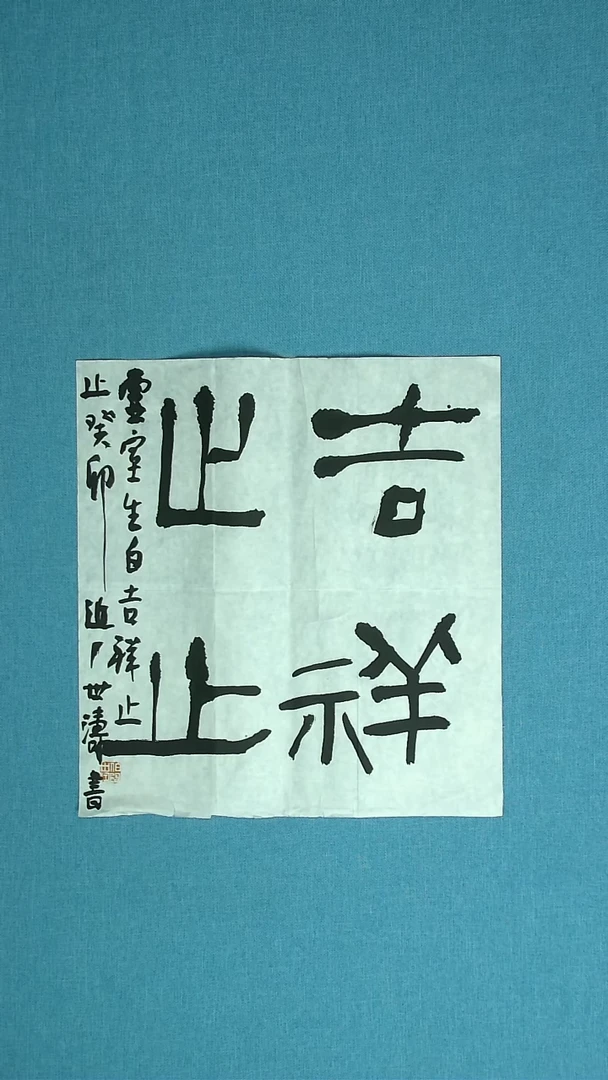 吉祥
止止
虛室生白吉祥止
止癸卯
世濤書